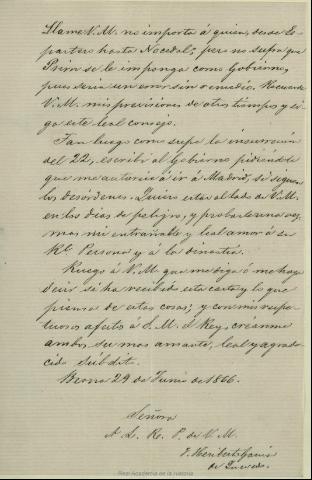 Llame V. M. no importa á quien, desde Es-
partero hasta Nocedal; pero no sufra que
Prim se le imponga como Gobierno,
pues seria un error sin remedio. Recuerde
V. M. mis previsiones de otros tiempos y si-
ga este leal consejo.
Tan luego como supe la insurreccion
del 22, escribí al Gobierno pidiéndole
que me autorice á ir á Madrid, si siguen
los desórdenes. Quiero estar al lado de V. M.
en los dias de peligro, y probarle una vez
mas mi entrañable y leal amor á su
Rl. Persona y á la dinastía.
Ruego á V. M. que me diga ó me haga
decir si ha recibido esta carta y lo que
piensa de estas cosas; y con mis respe-
tuosos afectos á S. M. el Rey, créanme
ambos su mas amante, leal y agrade-
cido súbdito.
Berna 29 de Junio de 1866.
Señora
A L. R. P. de V. M.
J. Heriberto García
de Quevedo.
Real Academia de la Historia